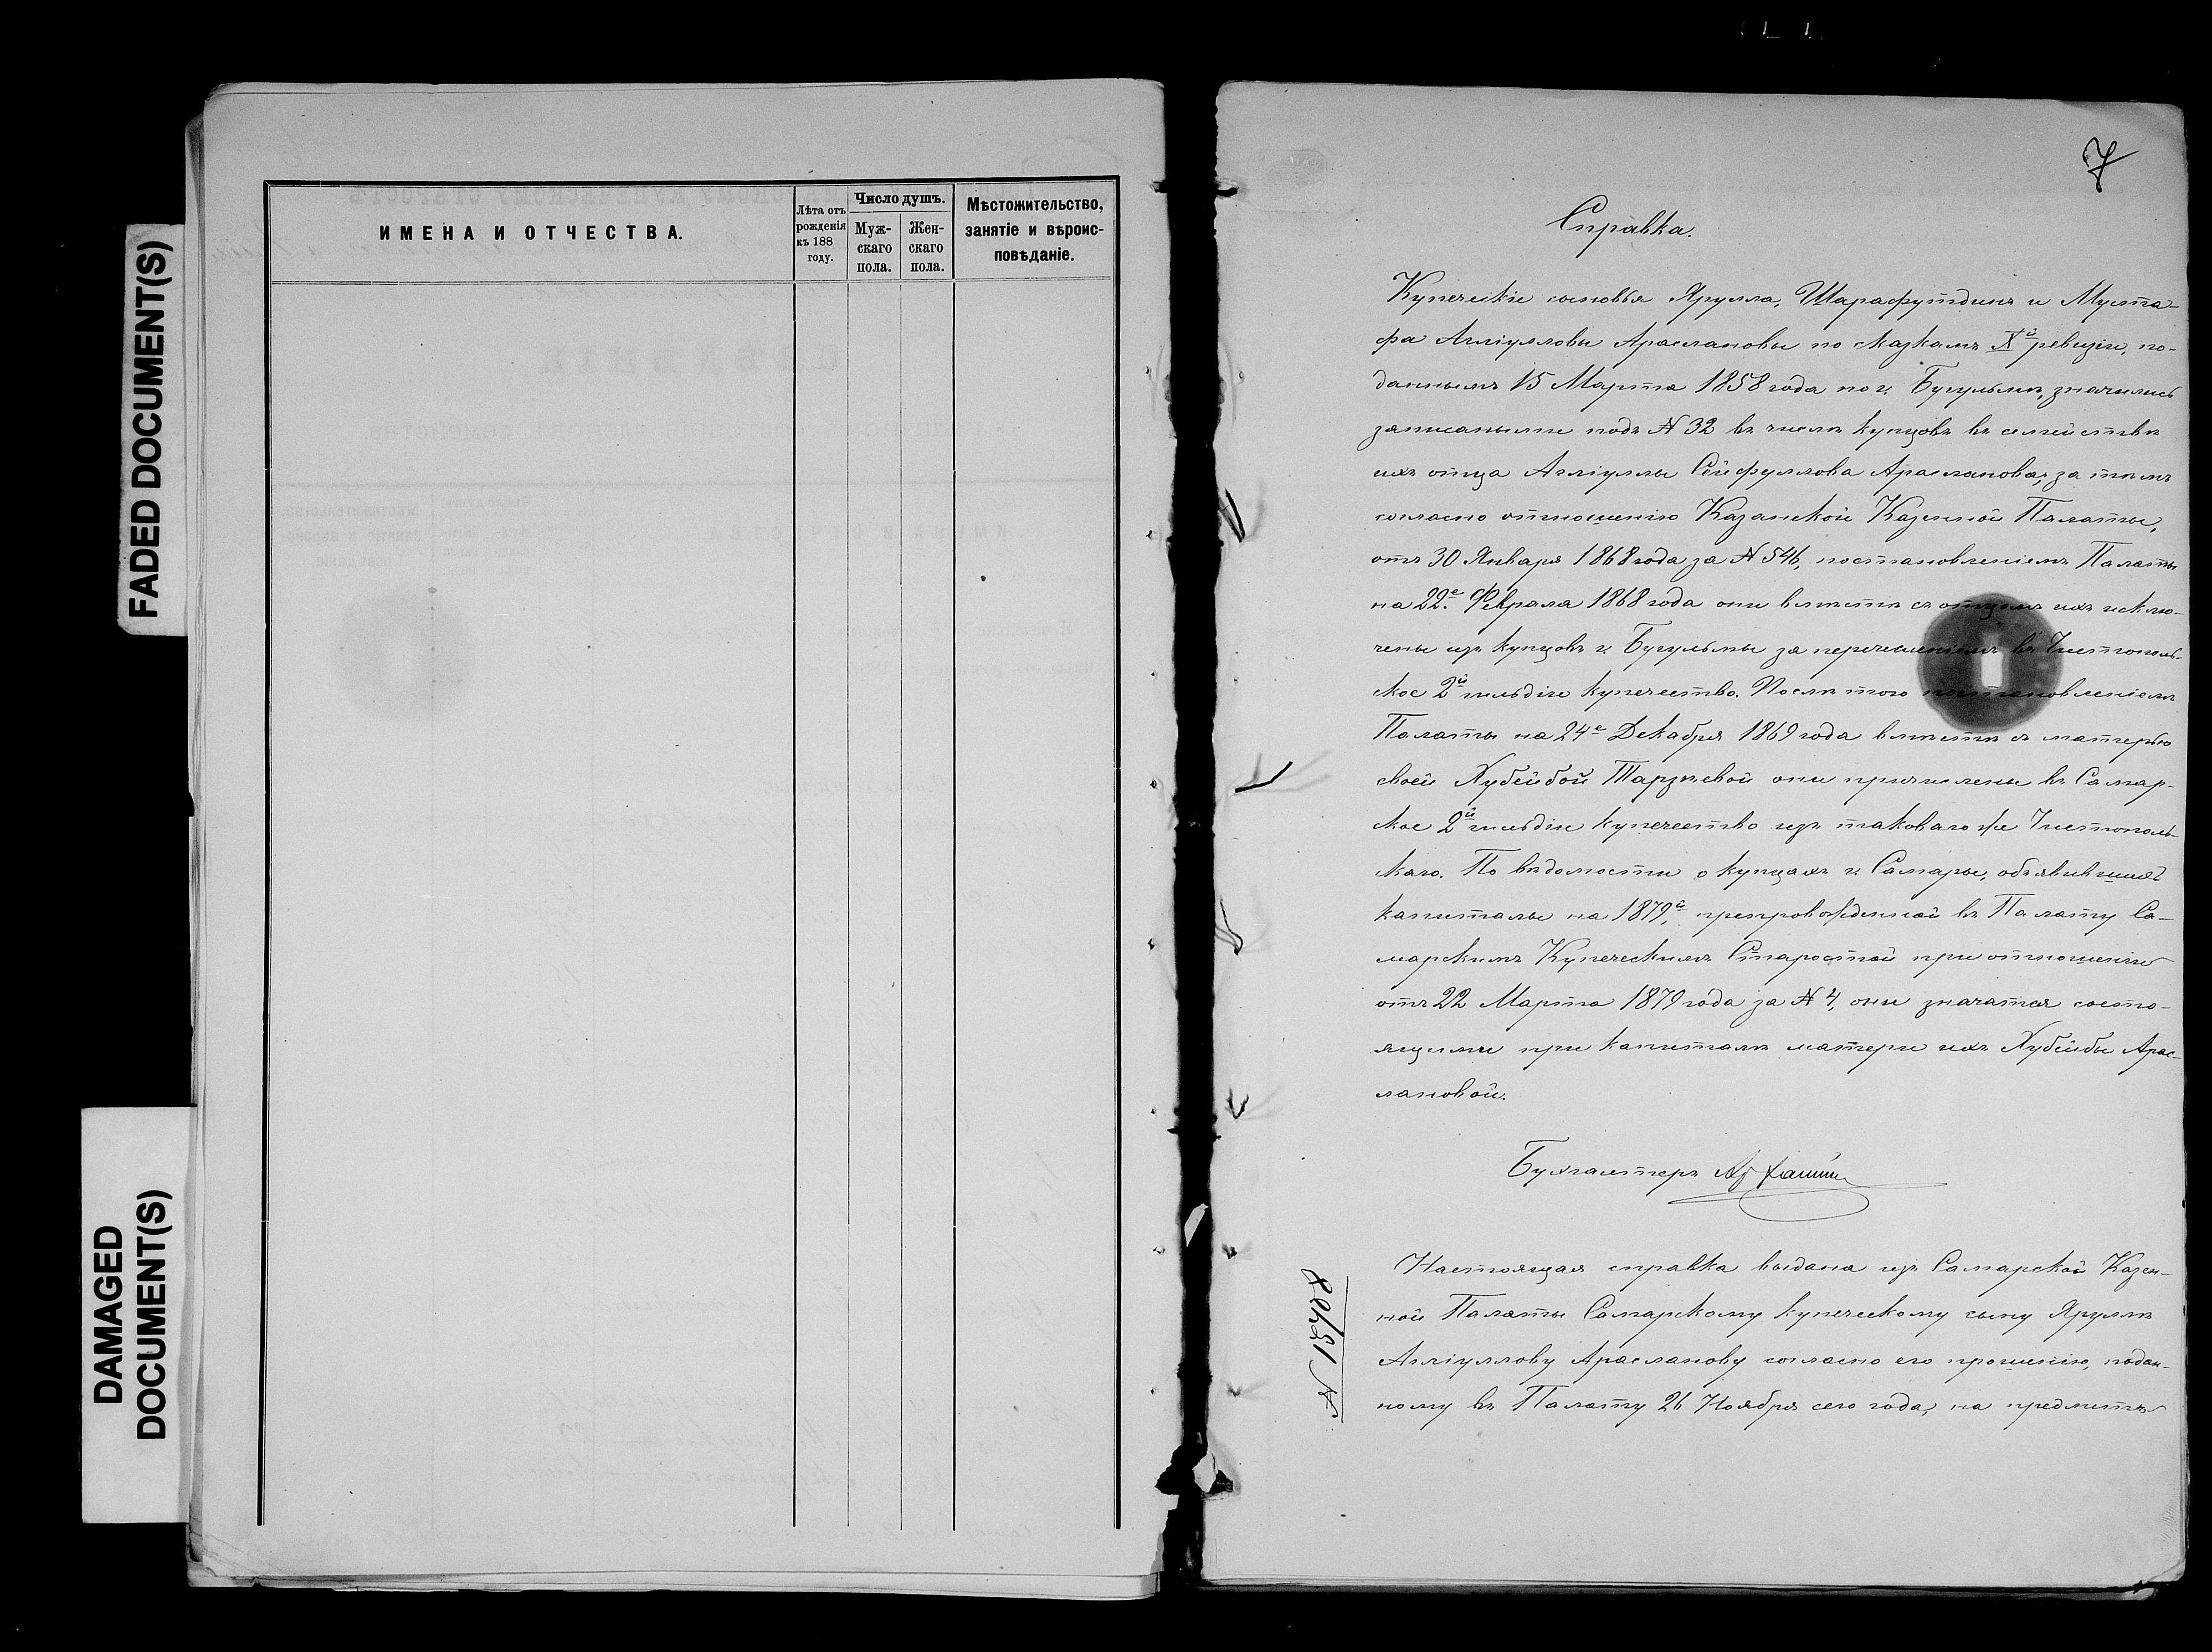 FADED DOCUMENT(S)
DAMAGED
DOCUMENT(S)
ИМЕНА И ОТЧЕСТВА.
Лѣта отъ
рожденія
къ 188
году.
Число душъ.
Муж-
скаго
пола.
Жен-
скаго
пола.
Мѣстожительство,
занятіе и вѣроис-
повѣданіе.
7
Справка.
Купеческіе сыновья Ярулла, Шарафутдинъ и Муста-
фа Агліулловы Араслановы по сказкамъ Xй ревизіи, по-
даннымъ 15 Марта 1858 года по г. Бугульмѣ, значились
записаными подъ № 32 въ числѣ купцовъ въ семействѣ
ихъ отца Агліуллы Сейфуллова Арасланова, за тѣмъ
согласно отношенію Казанской Казенной Палаты,
отъ 30 Января 1868 года за № 546, постановленіемъ Палаты
на 22е Февраля 1868 года они вмѣстѣ съ отцомъ ихъ исклю-
чены изъ купцовъ г. Бугульмы за перечисленіемъ въ Чистополь-
ское 2й гильдіи купечество. Послѣ того постановленіемъ
Палаты на 24е Декабря 1869 года вмѣстѣ съ матерью
своей Хубейбой Тарзѣевой они причислены въ Самар-
ское 2й гильдіи купечество изъ таковаго же Чистополь-
скаго. По вѣдомости о купцахъ г. Самары, объявившихъ
капиталы на 1879й, препровожденной въ Палату Са-
марскимъ Купеческимъ Старостой при отношеніи
отъ 22 Марта 1879 года за № 4, они значатся состо-
ящими при капиталѣ матери ихъ Хубейбы Арас-
лановой.
Бухгалтеръ
№ 15408
Настоящая справка выдана изъ Самарской Казен-
ной Палаты Самарскому купеческому сыну Яруллѣ
Агліуллову Арасланову согласно его прошенію, подан-
ному въ Палату 26 Ноября сего года, на предметъ